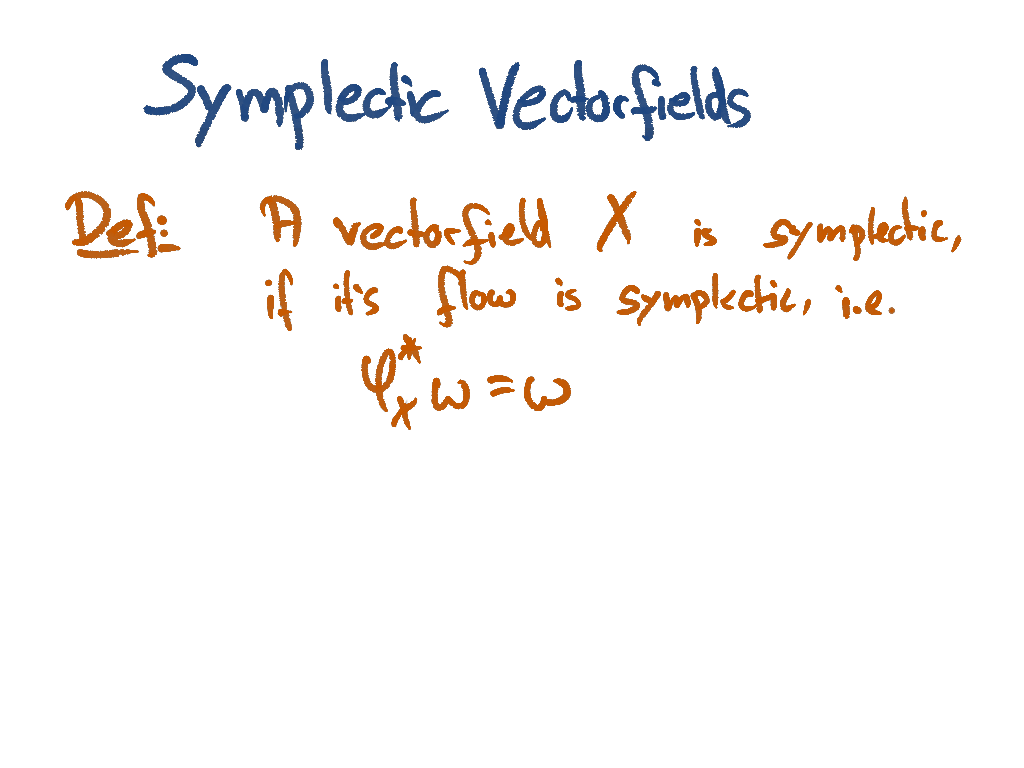 Symplectic Vectorfields
Def: A vectorfield X is symplectic,
if it's flow is symplectic, i.e.
φ_X^* ω = ω